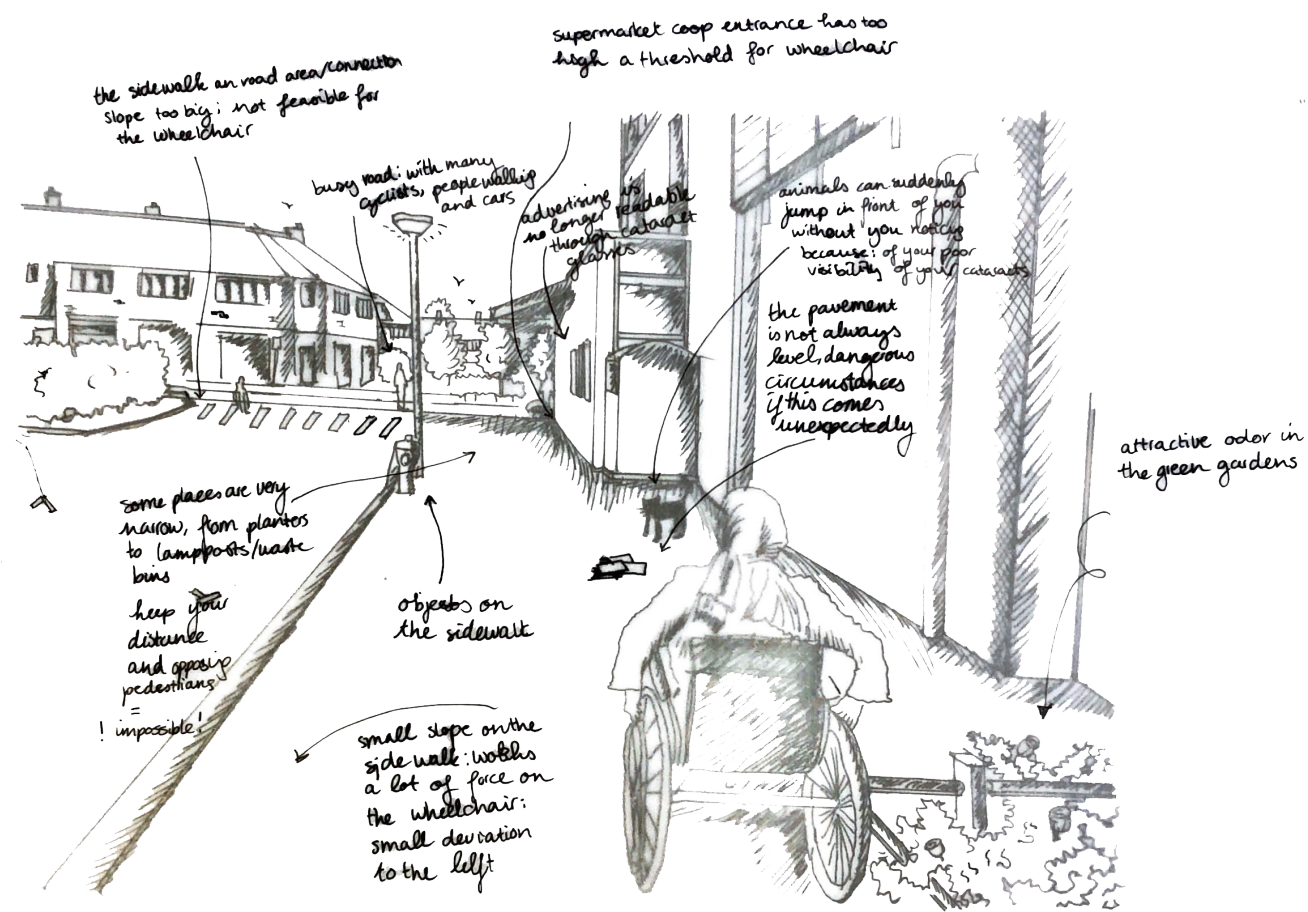 supermarket coop entrance has too
high a threshold for wheelchair
the sidewalk an road area/connection
slope too big; not feasible for
the wheelchair
busy road: with many
cyclists, people walking
and cars
advertising is
no longer readable
through cataract
glasses
animals can suddenly
jump in front of you
without you noticing
because: of your poor
visibility of your cataracts
the pavement
is not always
level, dangerous
circumstances
if this comes
unexpectedly
attractive odor in
the green gardens
some places are very
narrow, from planters
to lampposts/waste
bins
keep your
distance
and opposing
pedestrians
=
! impossible!
objects on
the sidewalk
small slope on the
side walk: works
a lot of force on
the wheelchair:
small deviation
to the lelft